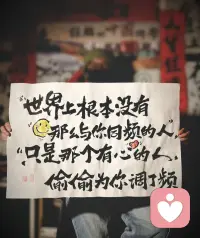 “世界上根本没有
那么与你同频的人”
“只是那个有心的人,
偷偷为你调了频